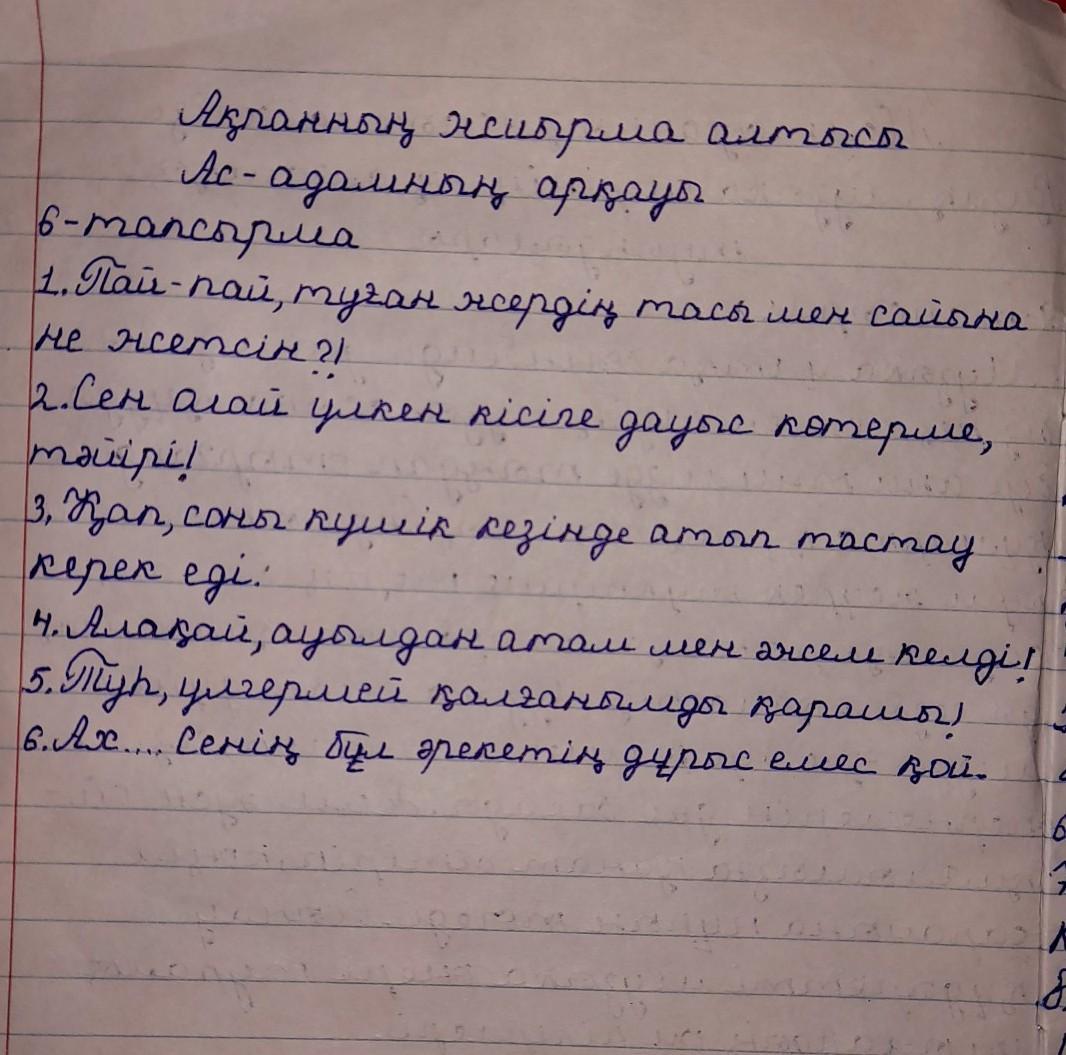 Ақпанның жиырма алтысы
Ас-адамның арқауы
6-тапсырма
1. Пай-пай, туған жердің тасы мен сайына
не жетсін?!
2. Сен алай үлкен кісіге дауыс көтерме,
тәйірі!
3, Қап, соны күшік кезінде атып тастау
керек еді.
4. Алақай, ауылдан атам мен әжем келді!
5. Түһ, үлгермей қалғанымды қарашы!
6. Ах.... Сенің бұл әрекетің дұрыс емес қой.